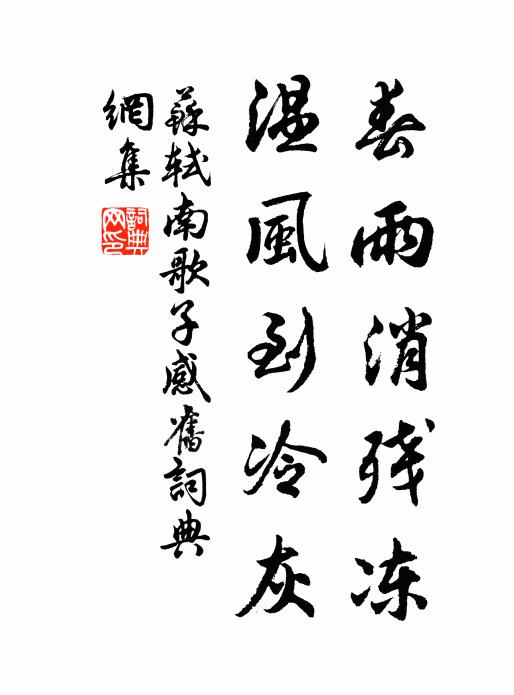 春雨消残冻
温風到冷灰
蘇軾南歌子感舊詞典
網集
詞典网印